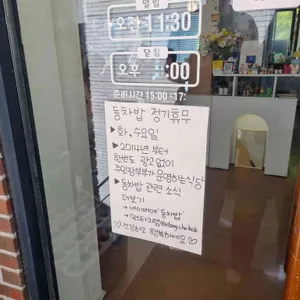 열림
오전 11:30
닫힘
오후 :00
준비시간 15:00-17:
동차밥 정기휴무
▶ 화, 수요일
▶ 2014년 부터
한번도 광고없이
주인장부부가 운영하는식당
▶ 동차밥 관련 소식
더보기
→ 네이버에 '동차밥'
→ 인스타그램@dong.cha.bab
♡ 건강하고 행복하세요 ♡